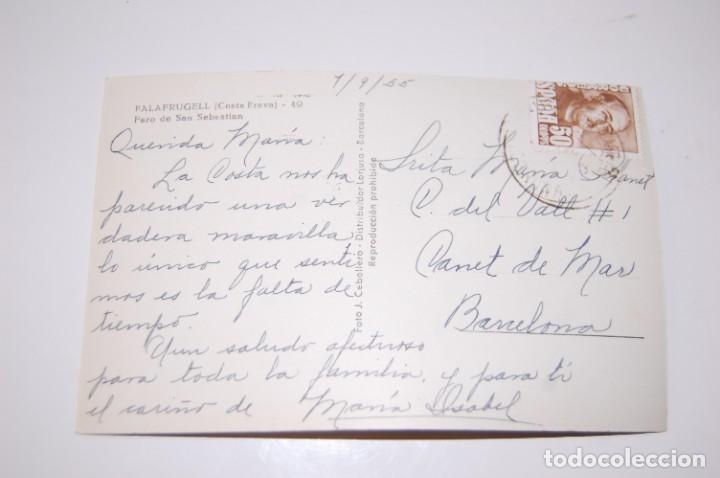 7/9/55
PALAFRUGELL (Costa Brava) - 40
Faro de San Sebastian
Querida María:
La Costa nos ha
parecido una ver
dadera maravilla
lo único que senti
mos es la falta de
tiempo.
Un saludo afectuoso
para toda la familia, y para ti
el cariño de María Isabel
Foto J. Cebollero - Distribuidor Lorjura - Barcelona
Reproducción prohibida
ESPAÑA
50
Srita María
C. del Vall #1
Canet de Mar
Barcelona
todocoleccion.net